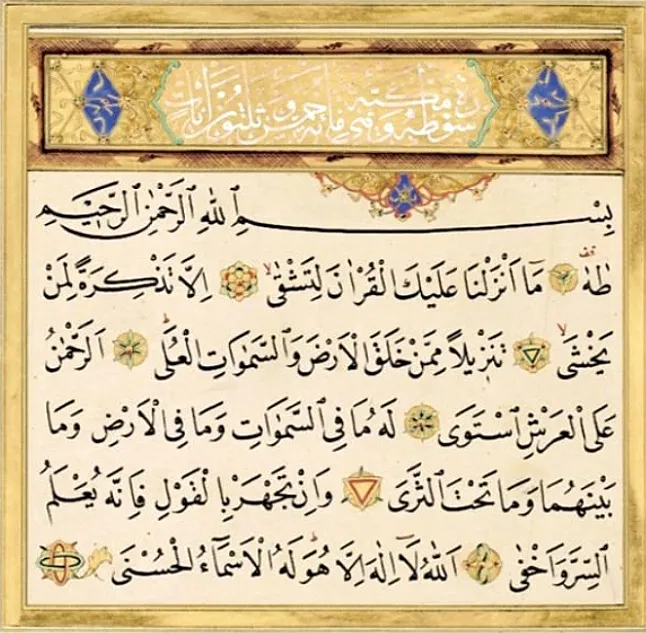 سورة طه مكية وهي مائة وخمس وثلثون ايات
بِسْمِ ٱللهِ ٱلرَّحْمٰنِ ٱلرَّحِيمِ
طٰهٰ مَٓا اَنْزَلْنَا عَلَيْكَ الْقُرْاٰنَ لِتَشْقٰىۙ اِلَّا تَذْكِرَةً لِمَنْ
يَخْشٰىۙ تَنْزِيلاً مِمَّنْ خَلَقَ الْاَرْضَ وَالسَّمٰوَاتِ الْعُلٰىؕ اَلرَّحْمٰنُ
عَلَى الْعَرْشِ اسْتَوٰى لَهُ مَا فِى السَّمٰوَاتِ وَمَا فِى الْاَرْضِ وَمَا
بَيْنَهُمَا وَمَا تَحْتَ الثَّرٰى وَاِنْ تَجْهَرْ بِالْقَوْلِ فَاِنَّهُ يَعْلَمُ
السِّرَّ وَاَخْفٰى اَللهُ لَٓا اِلٰهَ اِلَّا هُوَؕ لَهُ الْاَسْمَٓاءُ الْحُسْنٰى